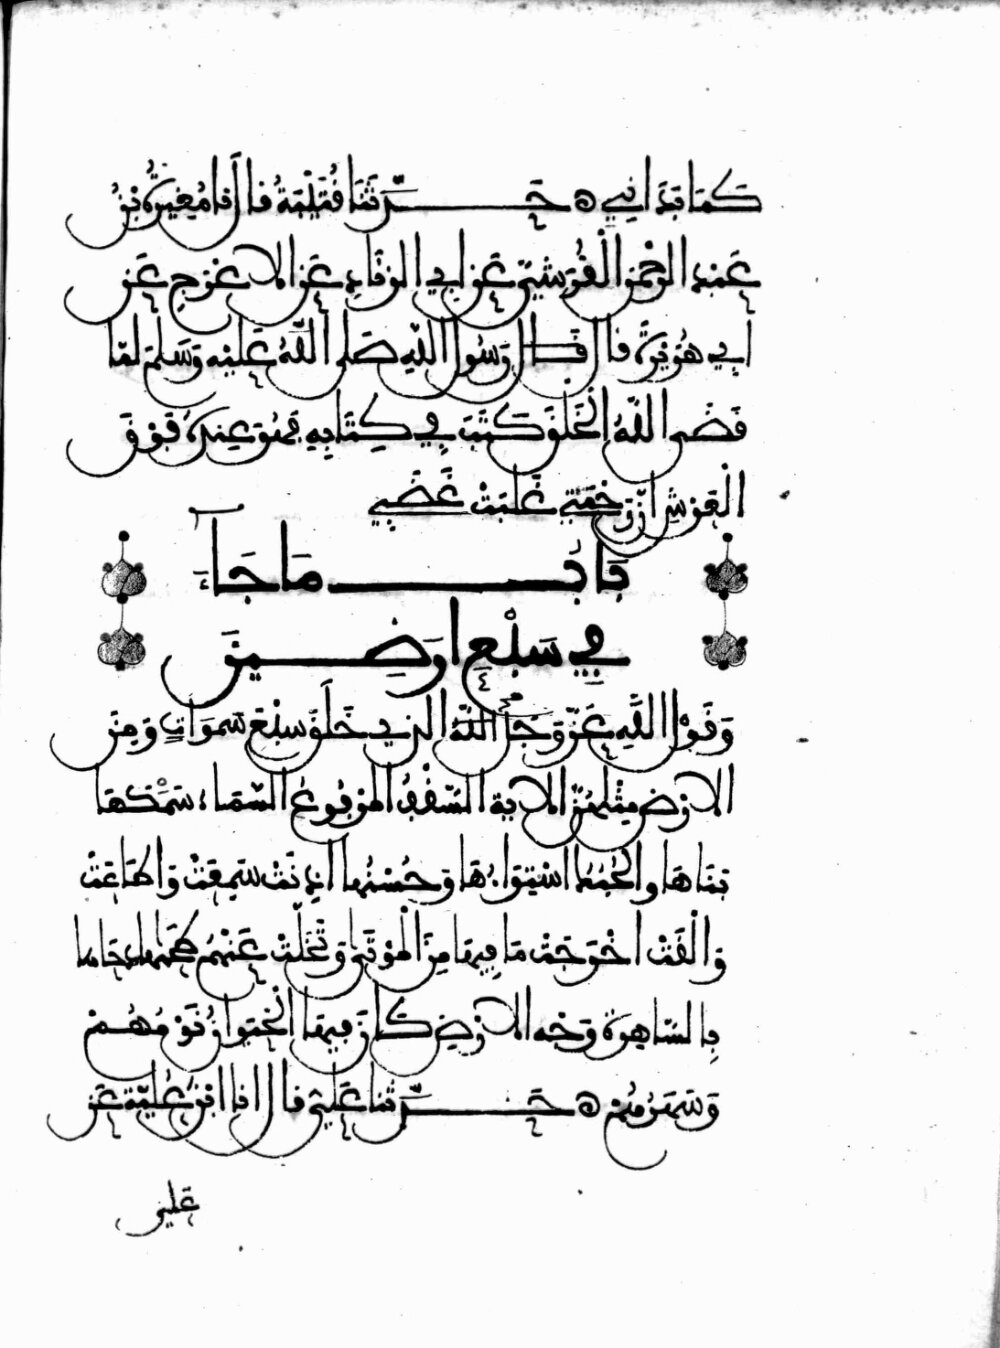 كَمَا بَدَأَنِي ه حَدَّثَنَا قُتَيْبَةُ قَالَ نا مُغِيرَةُ بْنُ
عَبْدِ الرَّحْمَنِ الْقُرَشِيُّ عَنْ أَبِي الزِّنَادِ عَنِ الأَعْرَجِ عَنْ
أَبِي هُرَيْرَةَ قَالَ قَالَ رَسُولُ اللَّهِ صَلَّى اللَّهُ عَلَيْهِ وَسَلَّمَ لَمَّا
قَضَى اللَّهُ الْخَلْقَ كَتَبَ فِي كِتَابِهِ فَهُوَ عِنْدَهُ فَوْقَ
الْعَرْشِ إِنَّ رَحْمَتِي غَلَبَتْ غَضَبِي
بَابُ مَا جَاءَ
فِي سَبْعِ أَرَضِينَ
وَقَوْلِ اللَّهِ عَزَّ وَجَلَّ اللَّهُ الَّذِي خَلَقَ سَبْعَ سَمَوَاتٍ وَمِنَ
الأَرْضِ مِثْلَهُنَّ الآيَةَ السَّقْفُ الْمَرْفُوعُ السَّمَاءُ سَمْكَهَا
بِنَاءَهَا وَالْحُبُكُ اسْتِوَاؤُهَا وَحُسْنُهَا أَذِنَتْ سَمِعَتْ وَأَطَاعَتْ
وَأَلْقَتْ أَخْرَجَتْ مَا فِيهَا مِنَ الْمَوْتَى وَتَخَلَّتْ عَنْهُمْ طَحَاهَا دَحَاهَا
بِالسَّاهِرَةِ وَجْهُ الأَرْضِ كَانَ فِيهَا الْحَيَوَانُ نَوْمُهُمْ
وَسَهَرُهُمْ ه حَدَّثَنَا عَلِيٌّ قَالَ أنا ابْنُ عُلَيَّةَ عَنْ
عَلِيِّ